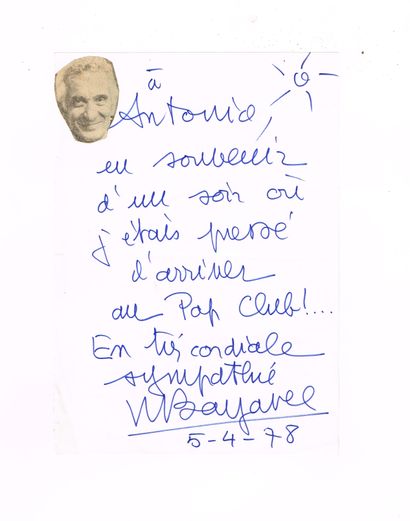 à
Antonio
en souvenir
d'un soir où
j'étais pressé
d'arriver
au Pap Club!...
En très cordiale
sympathie
5-4-78